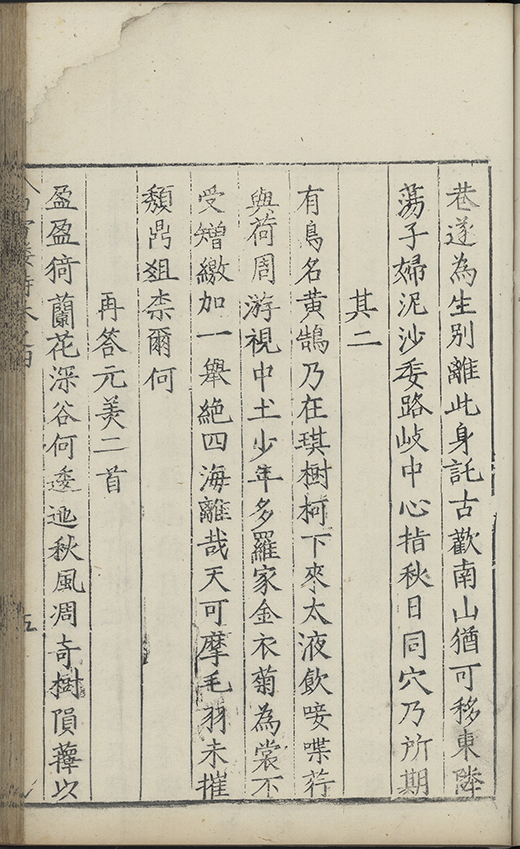 巷遂為生別離此身託古歡南山猶可移東隣
蕩子婦泥沙委路歧中心指秋日同穴乃所期
其二
有鳥名黃鵠乃在琪樹柯下來太液飲唼喋荇
與荷周游視中土少年多羅家金衣菊為裳不
受矰繳加一舉絶四海離哉天可摩毛羽未摧
頽鼎俎柰爾何
再答元美二首
盈盈猗蘭花深谷何逶迤秋風凋奇樹隕蘀以
五